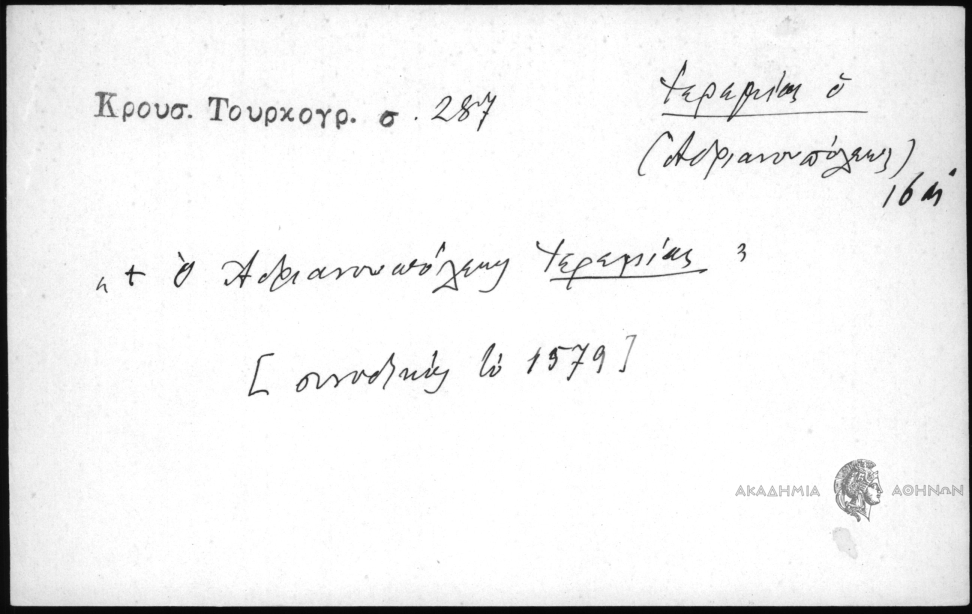 Κρουσ. Τουρκογρ. σ. 287
Ἱερεμίας ὁ
(Ἀδριανουπόλεως)
16 αἰ
« + ὁ Ἀδριανουπόλεως Ἱερεμίας »
[ συνοδικῶς τῷ 1579 ]
ΑΚΑΔΗΜΙΑ ΑΘΗΝΩΝ